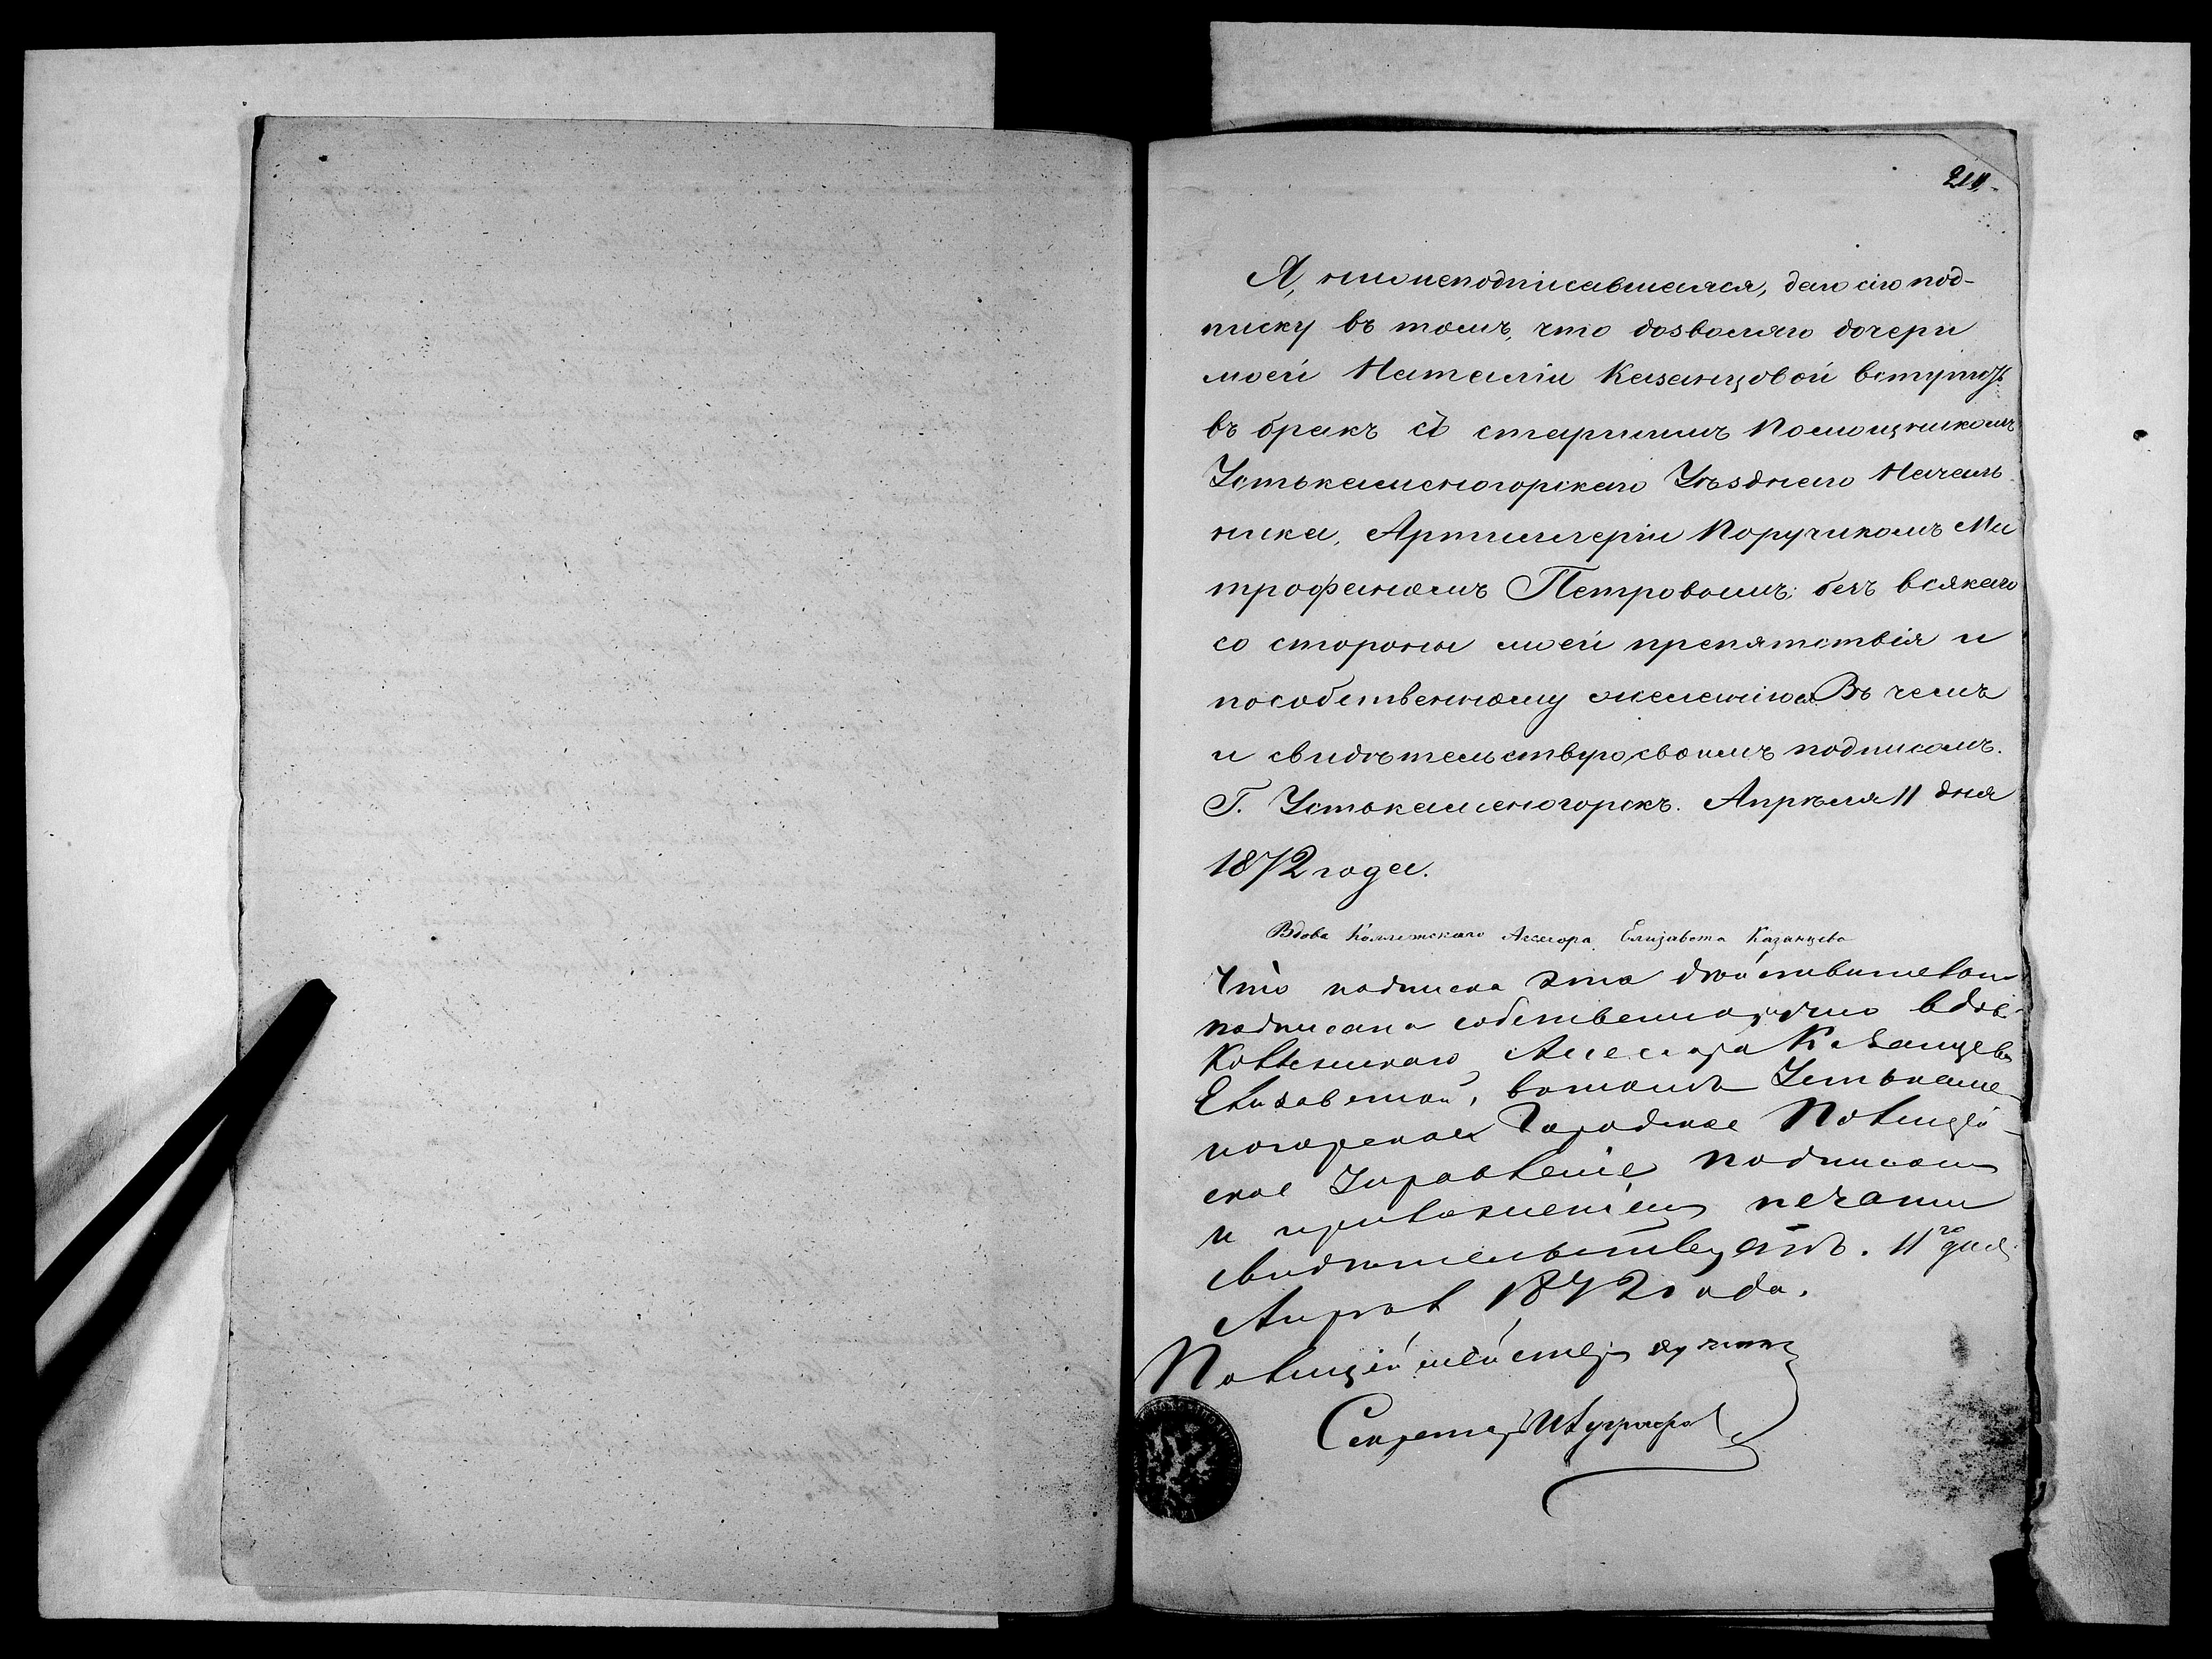 Я, нижеподписавшаяся, даю сію под-
писку въ томъ, что дозволяю дочери
моей Наталіи Казанцовой вступить
въ бракъ съ старшимъ Помощникомъ
Устькаменогорскаго Уѣзднаго Началь
ника, Артиллеріи Поручикомъ Ми
трофаномъ Петровымъ; безъ всякаго
со стороны моей препятствія и
пособственному желанію. Въ чемъ
и свидѣтельствую, своимъ подписомъ.
Г. Устькаменогорскъ. Апрѣля 11 дня
1872 года.
Вдова Коллежскаго Ассесора Елизавета Казанцева
Что подписка эта дѣйствительно
подписана собственноручно вдов.
Коллежскаго Ассесора Казанцева
Елизаветой, вътомъ Устькаме-
ногорское Городское Полицей-
ское Управленіе подписомъ
и приложеніемъ печати
свидѣтельствуетъ. 11го дня
Апрѣля 1872 года.
Полиціймейстеръ
Секретарь